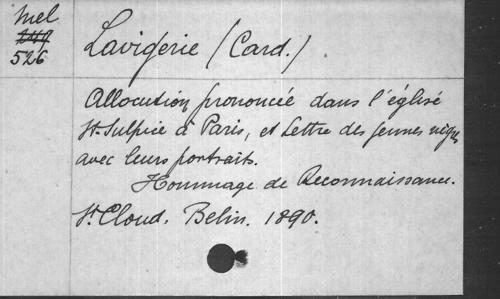 Mel
249
526
Lavigerie (Card.)
Allocution prononcée dans l'église
St. Sulpice à Paris, et Lettre des jeunes
avec leurs portraits.
Hommage de Reconnaissance.
St. Cloud. Belin. 1890.